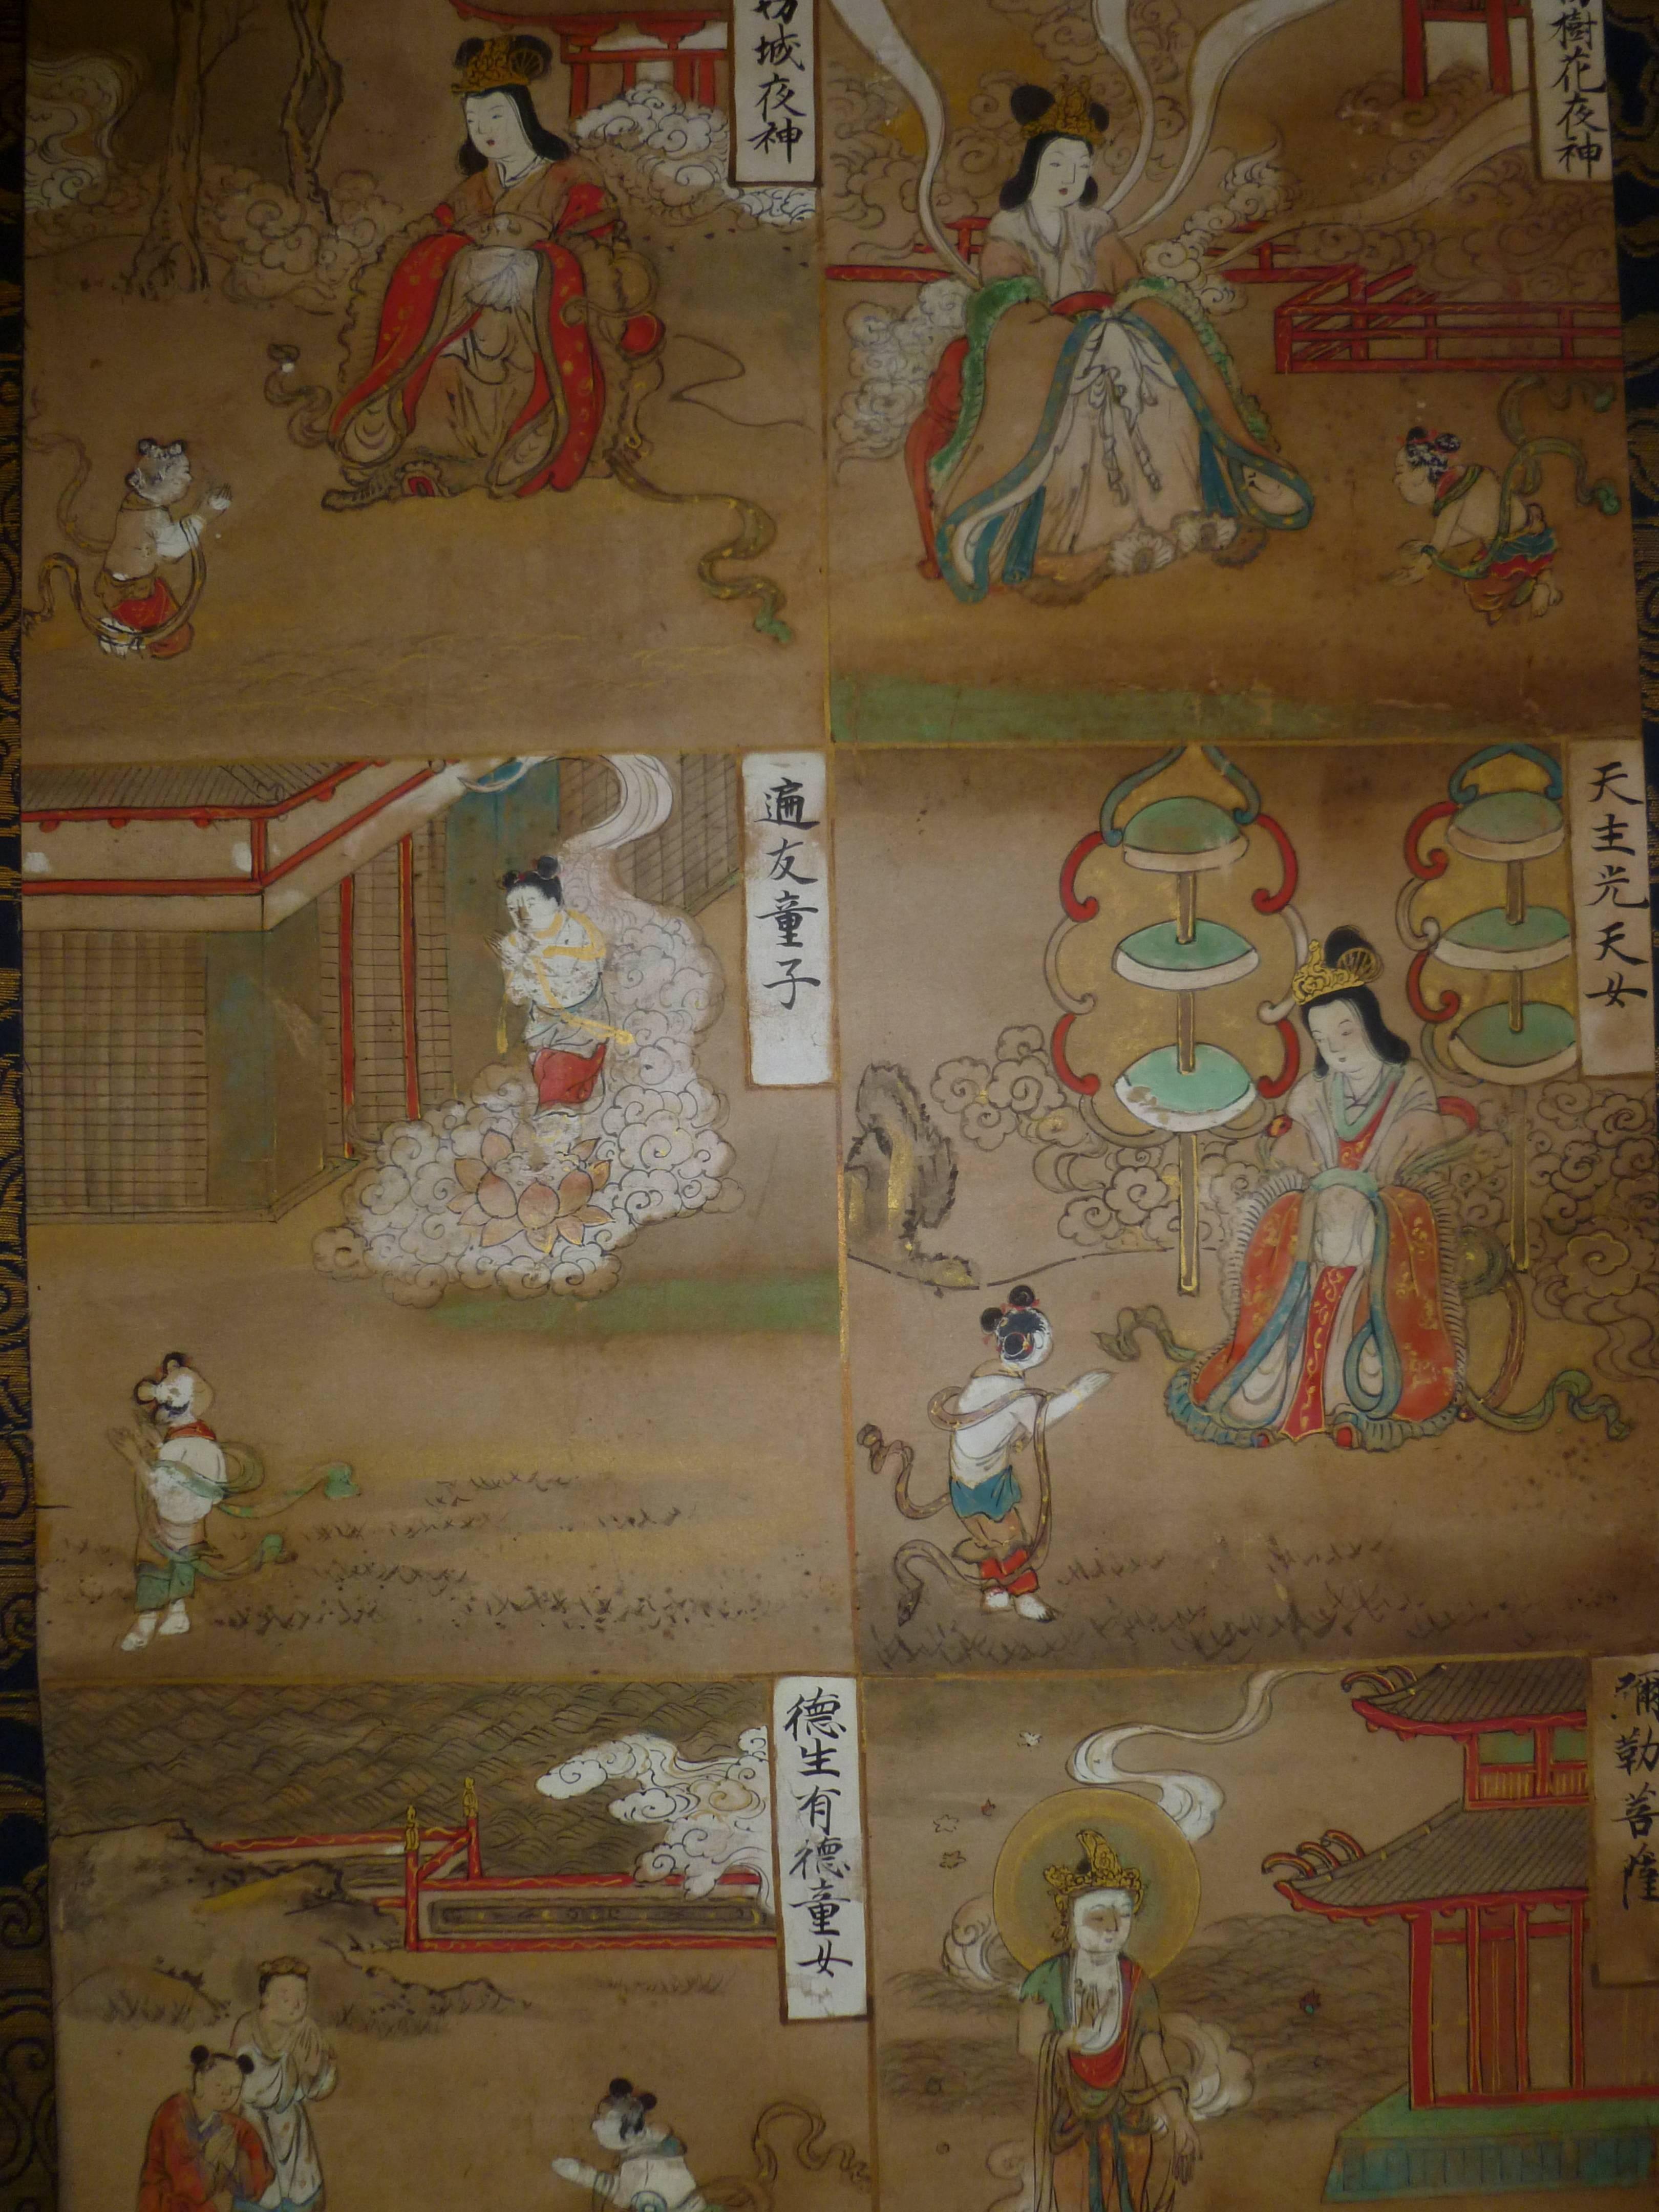 樹花夜神
城夜神
天主光天女
遍友童子
彌勒菩薩
德生有德童女